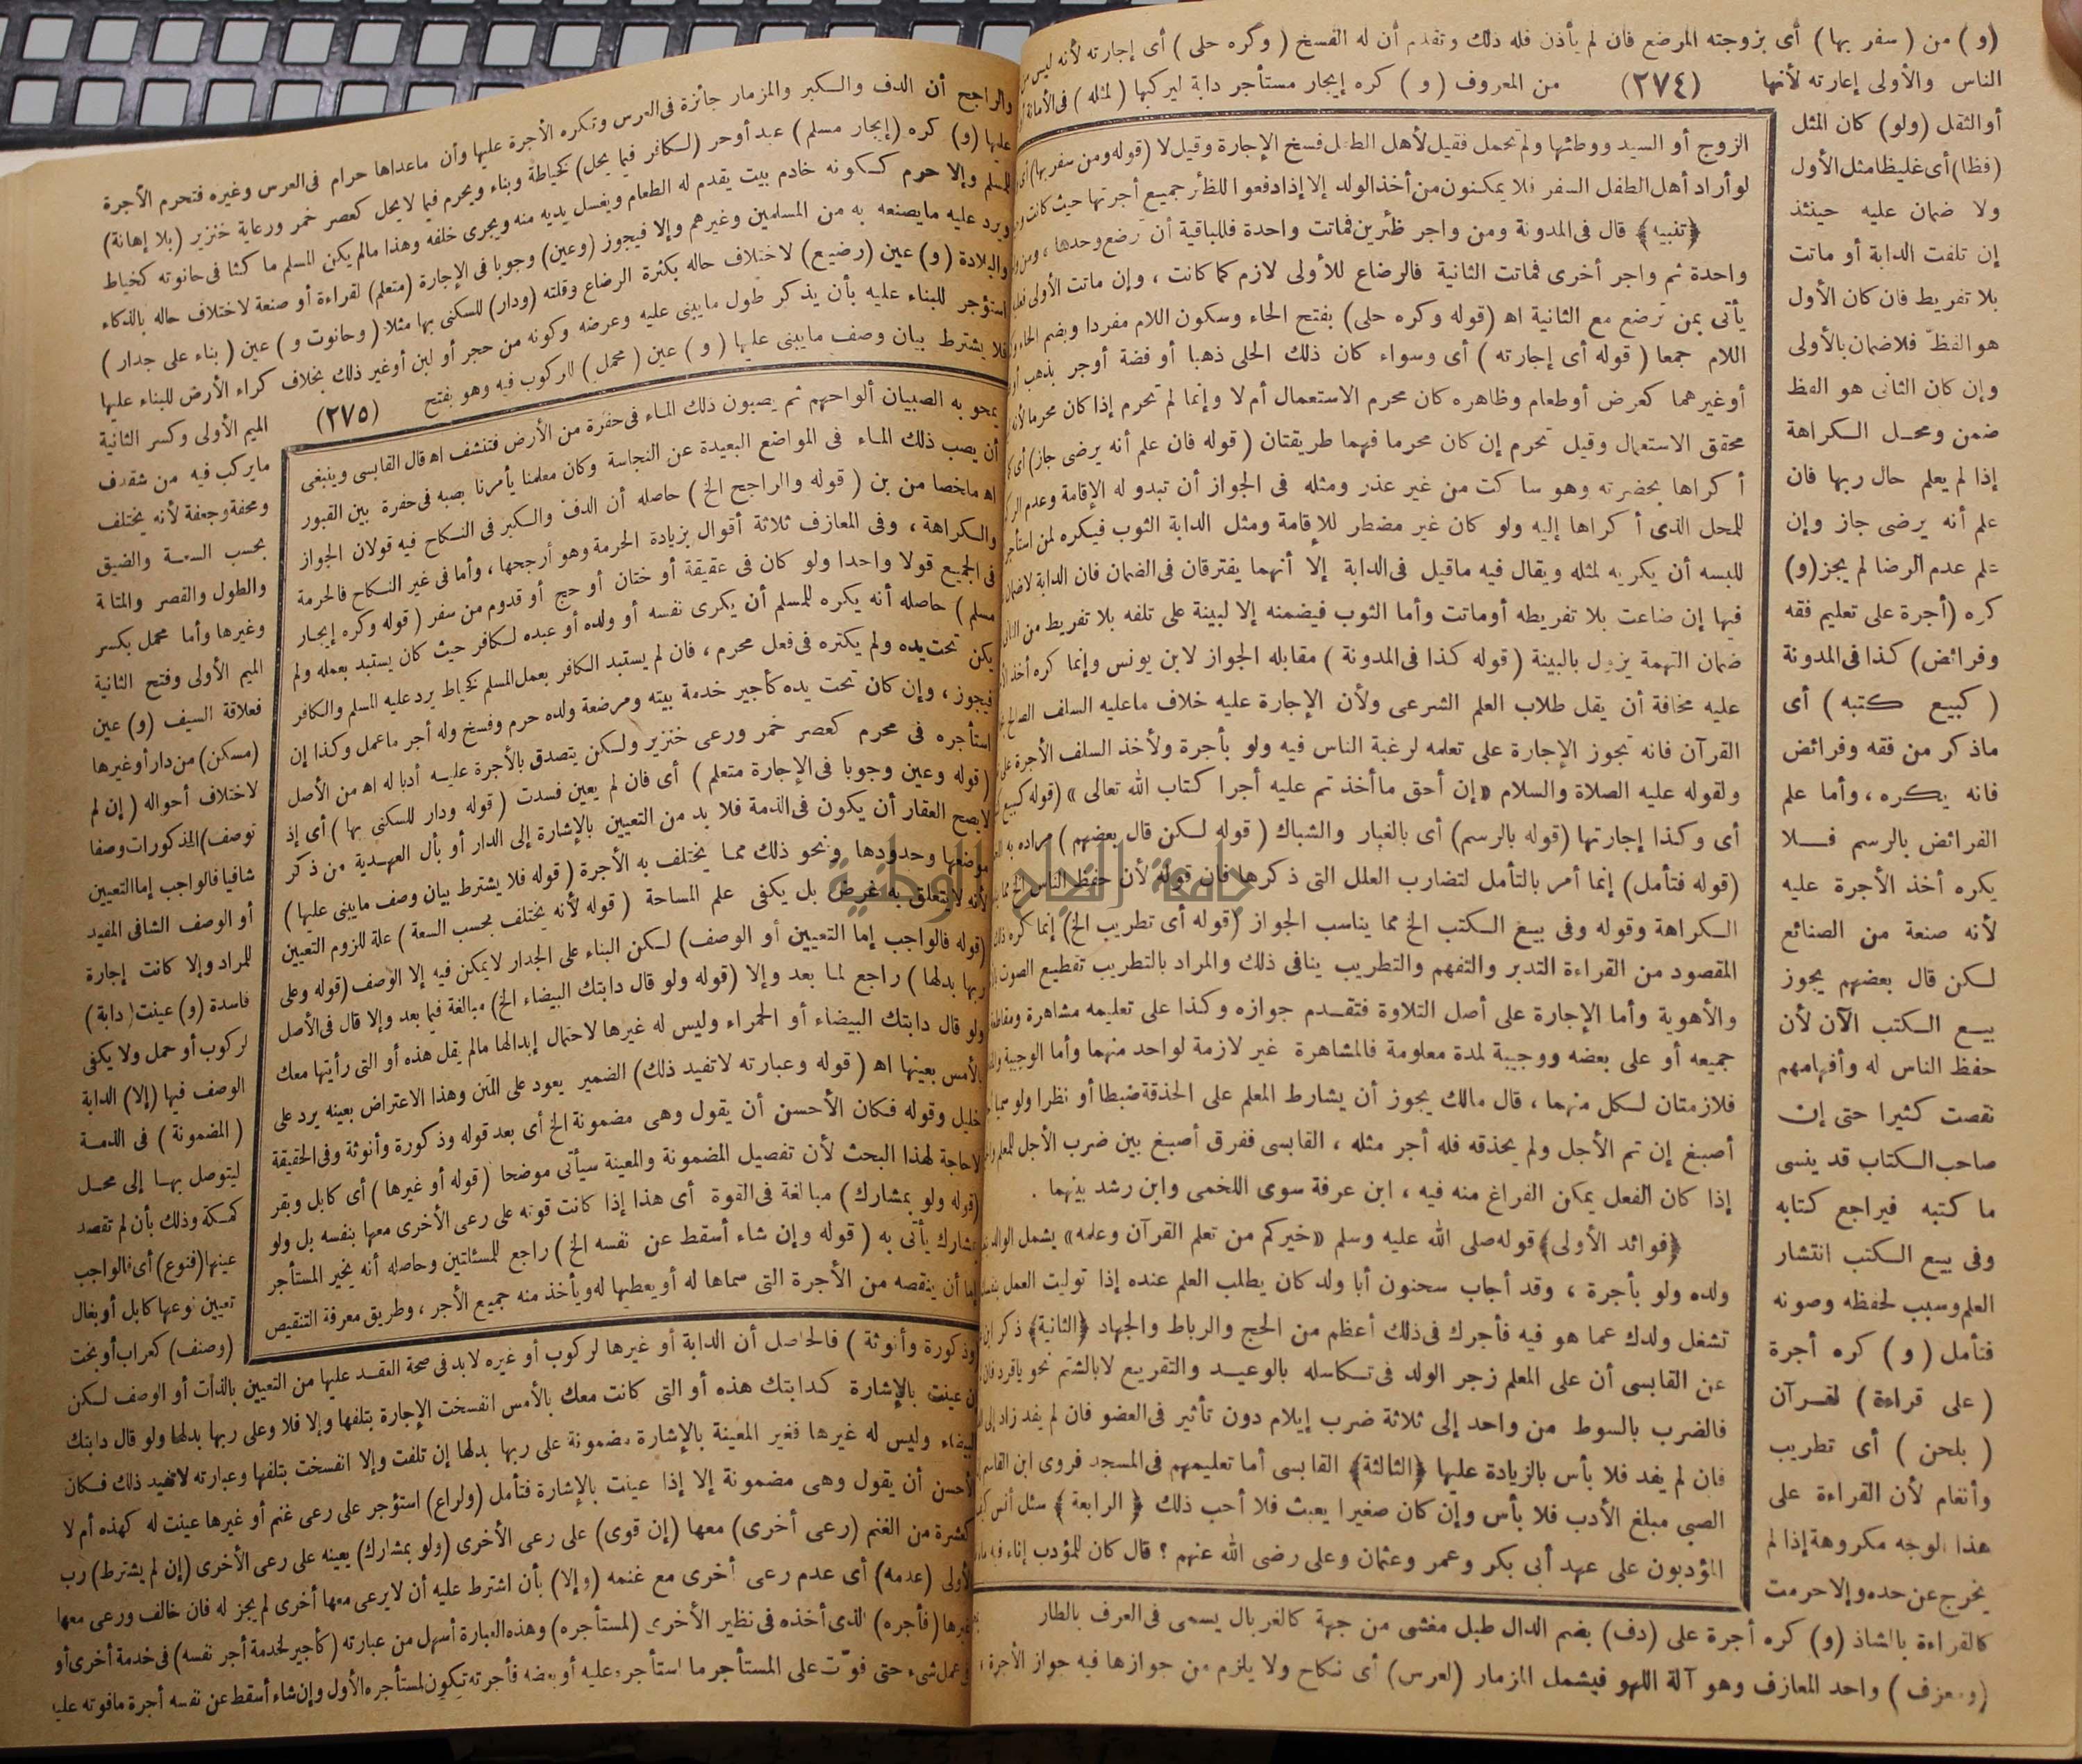 (و) من (سفر بها) أى بزوجته المرضع فان لم يأذن فله ذلك وتقدم أن له الفسخ (وكره حلى) أى إجارته لأنه ليس من
الناس والأولى إعارته لأنها (٢٧٤) من المعروف (و) كره إيجار مستأجر دابة ليركبها (لمثله) فى الأمانة
أوالثقل (ولو) كان المثل
(فظا) أى غليظا مثل الأول
ولا ضمان عليه حينئذ
إن تلفت الدابة أو ماتت
بلا تفريط فان كان الأول
هو الفظ فلاضمان بالأولى
وإن كان الثانى هو الفظ
ضمن ومحل الكراهة
إذا لم يعلم حال ربها فان
علم أنه يرضى جاز وإن
علم عدم الرضا لم يجز (و)
كره (أجرة على تعليم فقه
وفرائض) كذا فى المدونة
(كبيع كتبه) أى
ماذكر من فقه وفرائض
فانه يكره، وأما علم
الفرائض بالرسم فلا
يكره أخذ الأجرة عليه
لأنه صنعة من الصنائع
لكن قال بعضهم يجوز
بيع الكتب الآن لأن
حفظ الناس له وأفهامهم
نقصت كثيرا حتى إن
صاحب الكتاب قد ينسى
ما كتبه فيراجع كتابه
وفى بيع الكتب انتشار
العلم وسبب لحفظه وصونه
فتأمل (و) كره أجرة
(على قراءة) لقرآن
(بلحن) أى تطريب
وأنغام لأن القراءة على
هذا الوجه مكروهة إذا لم
يخرج عن حده وإلا حرمت
كالقراءة بالشاذ (و) كره أجرة على (دف) بضم الدال طبل مغشى من جهة كالغربال يسمى فى العرف بالطار
(ومعزف) واحد المعازف وهو آلة اللهو فيشمل المزمار (لعرس) أى نكاح ولا يلزم من جوازها فيه جواز الأجرة
الزوج أو السيد ووطئها ولم تحمل فقيل لأهل الطفل فسخ الإجارة وقيل لا (قوله ومن سفر بها) أى
لو أراد أهل الطفل السفر فلا يمكنون من أخذ الولد إلا إذا دفعوا للظئر جميع أجرتها حيث كانت
﴿تنبيه﴾ قال فى المدونة ومن واجر ظئرين فماتت واحدة فللباقية أن ترضع وحدها،
واحدة ثم واجر أخرى فماتت الثانية فالرضاع للأولى لازم كما كانت، وإن ماتت الأولى
يأتى بمن ترضع مع الثانية اه (قوله وكره حلى) بفتح الحاء وسكون اللام مفردا وبضم الحاء
اللام جمعا (قوله أى إجارته) أى وسواء كان ذلك الحلى ذهبا أو فضة أوجر بذهب
أو غيرهما كعرض أوطعام وظاهره كان محرم الاستعمال أم لا وإنما لم تحرم إذا كان محرما لأنه
محقق الاستعمال وقيل تحرم إن كان محرما فهما طريقتان (قوله فان علم أنه يرضى جاز)
أكراها بحضرته وهو ساكت من غير عذر ومثله فى الجواز أن تبدو له الإقامة وعدم
للمحل الذى أكراها إليه ولو كان غير مضطر للإقامة ومثل الدابة الثوب فيكره لمن استأجر
للبسه أن يكريه لمثله ويقال فيه ماقيل فى الدابة إلا أنهما يفترقان فى الضمان فان الدابة لاضمان
فيها إن ضاعت بلا تفريطه أوماتت وأما الثوب فيضمنه إلا لبينة على تلفه بلا تفريط من
ضمان التهمة يزول بالبينة (قوله كذا فى المدونة) مقابله الجواز لابن يونس وإنما كره أخذ
عليه مخافة أن يقل طلاب العلم الشرعى ولأن الإجارة عليه خلاف ماعليه السلف الصالح
القرآن فانه تجوز الإجارة على تعلمه لرغبة الناس فيه ولو بأجرة ولأخذ السلف الأجرة
ولقوله عليه الصلاة والسلام «إن أحق ما أخذتم عليه أجرا كتاب الله تعالى» (قوله كبيع
أى وكذا إجارتها (قوله بالرسم) أى بالغبار والشباك (قوله لكن قال بعضهم) مراده به
(قوله فتأمل) إنما أمر بالتأمل لتضارب العلل التى ذكرها فان قوله لأن حفظ الناس الخ
الكراهة وقوله وفى بيع الكتب الخ مما يناسب الجواز (قوله أى تطريب الخ) إنما كره
المقصود من القراءة التدبر والتفهم والتطريب ينافى ذلك والمراد بالتطريب تقطيع الصوت
والأهوية وأما الإجارة على أصل التلاوة فتقدم جوازه وكذا على تعليمه مشاهرة ومقاطعة
جميعه أو على بعضه ووجيبة لمدة معلومة فالمشاهرة غير لازمة لواحد منهما وأما الوجيبة
فلازمتان لكل منهما، قال مالك يجوز أن يشارط المعلم على الحذقة ضبطا أو نظرا ولو
أصبغ إن تم الأجل ولم يحذقه فله أجر مثله، القابسى ففرق أصبغ بين ضرب الأجل للمعلم
إذا كان الفعل يمكن الفراغ منه فيه، ابن عرفة سوى اللخمى وابن رشد بينهما.
﴿فوائد الأولى﴾ قوله صلى الله عليه وسلم «خيركم من تعلم القرآن وعلمه» يشمل الوالد
ولده ولو بأجرة، وقد أجاب سحنون أبا ولد كان يطلب العلم عنده إذا توليت العمل بنفسك
تشغل ولدك عما هو فيه فأجرك فى ذلك أعظم من الحج والرباط والجهاد ﴿الثانية﴾ ذكر
عن القابسى أن على المعلم زجر الولد فى تكاسله بالوعيد والتقريع لابالشتم نحو ياقرد
فالضرب بالسوط من واحد إلى ثلاثة ضرب إيلام دون تأثير فى العضو فان لم يفد زاد إلى
فان لم يفد فلا بأس بالزيادة عليها ﴿الثالثة﴾ القابسى أما تعليمهم فى المسجد فروى ابن القاسم
الصبى مبلغ الأدب فلا بأس وإن كان صغيرا يعبث فلا أحب ذلك ﴿الرابعة﴾ سئل أنس
المؤدبون على عهد أبى بكر وعمر وعثمان وعلى رضى الله عنهم؟ قال كان للمؤدب إناء فيه
والراجح أن الدف والكبر والمزمار جائزة فى العرس وتكره الأجرة عليها وأن ماعداها حرام فى العرس وغيره فتحرم الأجرة
عليها (و) كره (إيجار مسلم) عبد أوحر (لكافر فيما يحل) كخياطة وبناء ويحرم فيما لايحل كعصر خمر ورعاية خنزير (بلا إهانة)
للمسلم وإلا حرم ككونه خادم بيت يقدم له الطعام ويغسل يديه منه ويجرى خلفه وهذا مالم يكن المسلم ماكثا فى حانوته كخياط
ويرد عليه مايصنعه به من المسلمين وغيرهم وإلا فيجوز (وعين) وجوبا فى الإجارة (متعلم) لقراءة أو صنعة لاختلاف حاله بالذكاء
والبلادة (و) عين (رضيع) لاختلاف حاله بكثرة الرضاع وقلته (ودار) للسكنى بها مثلا (وحانوت و) عين (بناء على جدار)
استؤجر للبناء عليه بأن يذكر طول مايبنى عليه وعرضه وكونه من حجر أو لبن أوغير ذلك بخلاف كراء الأرض للبناء عليها
فلا يشترط بيان وصف مايبنى عليها (و) عين (محمل) للركوب فيه وهو بفتح (٢٧٥)
الميم الأولى وكسر الثانية
مايركب فيه من شقدف
ومحفة وجعفة لأنه يختلف
بحسب السعة والضيق
والطول والقصر والمتانة
وغيرها وأما محمل بكسر
الميم الأولى وفتح الثانية
فعلاقة السيف (و) عين
(مسكن) من دار أوغيرها
لاختلاف أحواله (إن لم
توصف) المذكورات وصفا
شافيا فالواجب إما التعيين
أو الوصف الشافى المفيد
للمراد وإلا كانت إجارة
فاسدة (و) عينت (دابة)
لركوب أو حمل ولا يكفى
الوصف فيها (إلا) الدابة
(المضمونة) فى الذمة
ليتوصل بها إلى محل
كمكة وذلك بأن لم تقصد
عينها (فنوع) أى فالواجب
تعيين نوعها كابل أو بغال
(وصنف) كعراب أو بخت
يمحو به الصبيان ألواحهم ثم يصبون ذلك الماء فى حفرة من الأرض فتنشف اه قال القابسى وينبغى
أن يصب ذلك الماء فى المواضع البعيدة عن النجاسة وكان معلمنا يأمرنا بصبه فى حفرة بين القبور
اه ملخصا من بن (قوله والراجح الخ) حاصله أن الدف والكبر فى النكاح فيه قولان الجواز
والكراهة، وفى المعازف ثلاثة أقوال بزيادة الحرمة وهو أرجحها، وأما فى غير النكاح فالحرمة
فى الجميع قولا واحدا ولو كان فى عقيقة أو ختان أو حج أو قدوم من سفر (قوله وكره إيجار
مسلم) حاصله أنه يكره للمسلم أن يكرى نفسه أو ولده أو عبده لكافر حيث كان يستبد بعمله ولم
يكن تحت يده ولم يكتره فى فعل محرم، فان لم يستبد الكافر بعمل المسلم كخياط يرد عليه المسلم والكافر
فيجوز، وإن كان تحت يده كأجير خدمة بيته ومرضعة ولده حرم وفسخ وله أجر ماعمل وكذا إن
استأجره فى محرم كعصر خمر ورعى خنزير ولكن يتصدق بالأجرة عليه أدبا له اه من الأصل
(قوله وعين وجوبا فى الإجارة متعلم) أى فان لم يعين فسدت (قوله ودار للسكنى بها) أى إذ
لايصح العقار أن يكون فى الذمة فلا بد من التعيين بالإشارة إلى الدار أو بأل العهدية من ذكر
موضعها وحدودها ونحو ذلك مما يختلف به الأجرة (قوله فلا يشترط بيان وصف مايبنى عليها)
لأنه لايتعلق به غرض بل يكفى علم المساحة (قوله لأنه يختلف بحسب السعة) علة للزوم التعيين
(قوله فالواجب إما التعيين أو الوصف) لكن البناء على الجدار لايمكن فيه إلا الوصف (قوله وعلى
ربها بدلها) راجع لما بعد وإلا (قوله ولو قال دابتك البيضاء الخ) مبالغة فيما بعد وإلا قال فى الأصل
ولو قال دابتك البيضاء أو الحمراء وليس له غيرها لاحتمال إبدالها مالم يقل هذه أو التى رأيتها معك
بالأمس بعينها اه (قوله وعبارته لاتفيد ذلك) الضمير يعود على المتن وهذا الاعتراض بعينه يرد على
خليل وقوله فكان الأحسن أن يقول وهى مضمونة الخ أى بعد قوله وذكورة وأنوثة وفى الحقيقة
لاحاجة لهذا البحث لأن تفصيل المضمونة والمعينة سيأتى موضحا (قوله أو غيرها) أى كابل وبقر
(قوله ولو بمشارك) مبالغة فى القوة أى هذا إذا كانت قوته على رعى الأخرى معها بنفسه بل ولو
بمشارك يأتى به (قوله وإن شاء أسقط عن نفسه الخ) راجع للمسئلتين وحاصله أنه يخير المستأجر
إما أن ينقصه من الأجرة التى سماها له أو يعطيها له ويأخذ منه جميع الأجر، وطريق معرفة التنقيص
وذكورة وأنوثة) فالحاصل أن الدابة أو غيرها لركوب أو غيره لابد فى صحة العقد عليها من التعيين بالذات أو الوصف لكن
إن عينت بالإشارة كدابتك هذه أو التى كانت معك بالأمس انفسخت الإجارة بتلفها وإلا فلا وعلى ربها بدلها ولو قال دابتك
البيضاء وليس له غيرها فغير المعينة بالإشارة مضمونة على ربها بدلها إن تلفت وإلا انفسخت بتلفها وعبارته لاتفيد ذلك فكان
الأحسن أن يقول وهى مضمونة إلا إذا عينت بالإشارة فتأمل (ولراع) استؤجر على رعى غنم أو غيرها عينت له كهذه أم لا
كعشرة من الغنم (رعى أخرى) معها (إن قوى) على رعى الأخرى (ولو بمشارك) يعينه على رعى الأخرى (إن لم يشترط) رب
الأولى (عدمه) أى عدم رعى أخرى مع غنمه (وإلا) بأن اشترط عليه أن لايرعى معها أخرى لم يجز له فان خالف ورعى معها
غيرها (فأجره) الذى أخذه فى نظير الأخرى (لمستأجره) وهذه العبارة أسهل من عبارته (كأجير لخدمة أجر نفسه) فى خدمة أخرى أو
فى عمل شىء حتى فوّت على المستأجر ما استأجره عليه أو بعضه فأجرته تكون لمستأجره الأول وإن شاء أسقط عن نفسه أجرة مافوته عليه
جامعة النجاح الوطنية